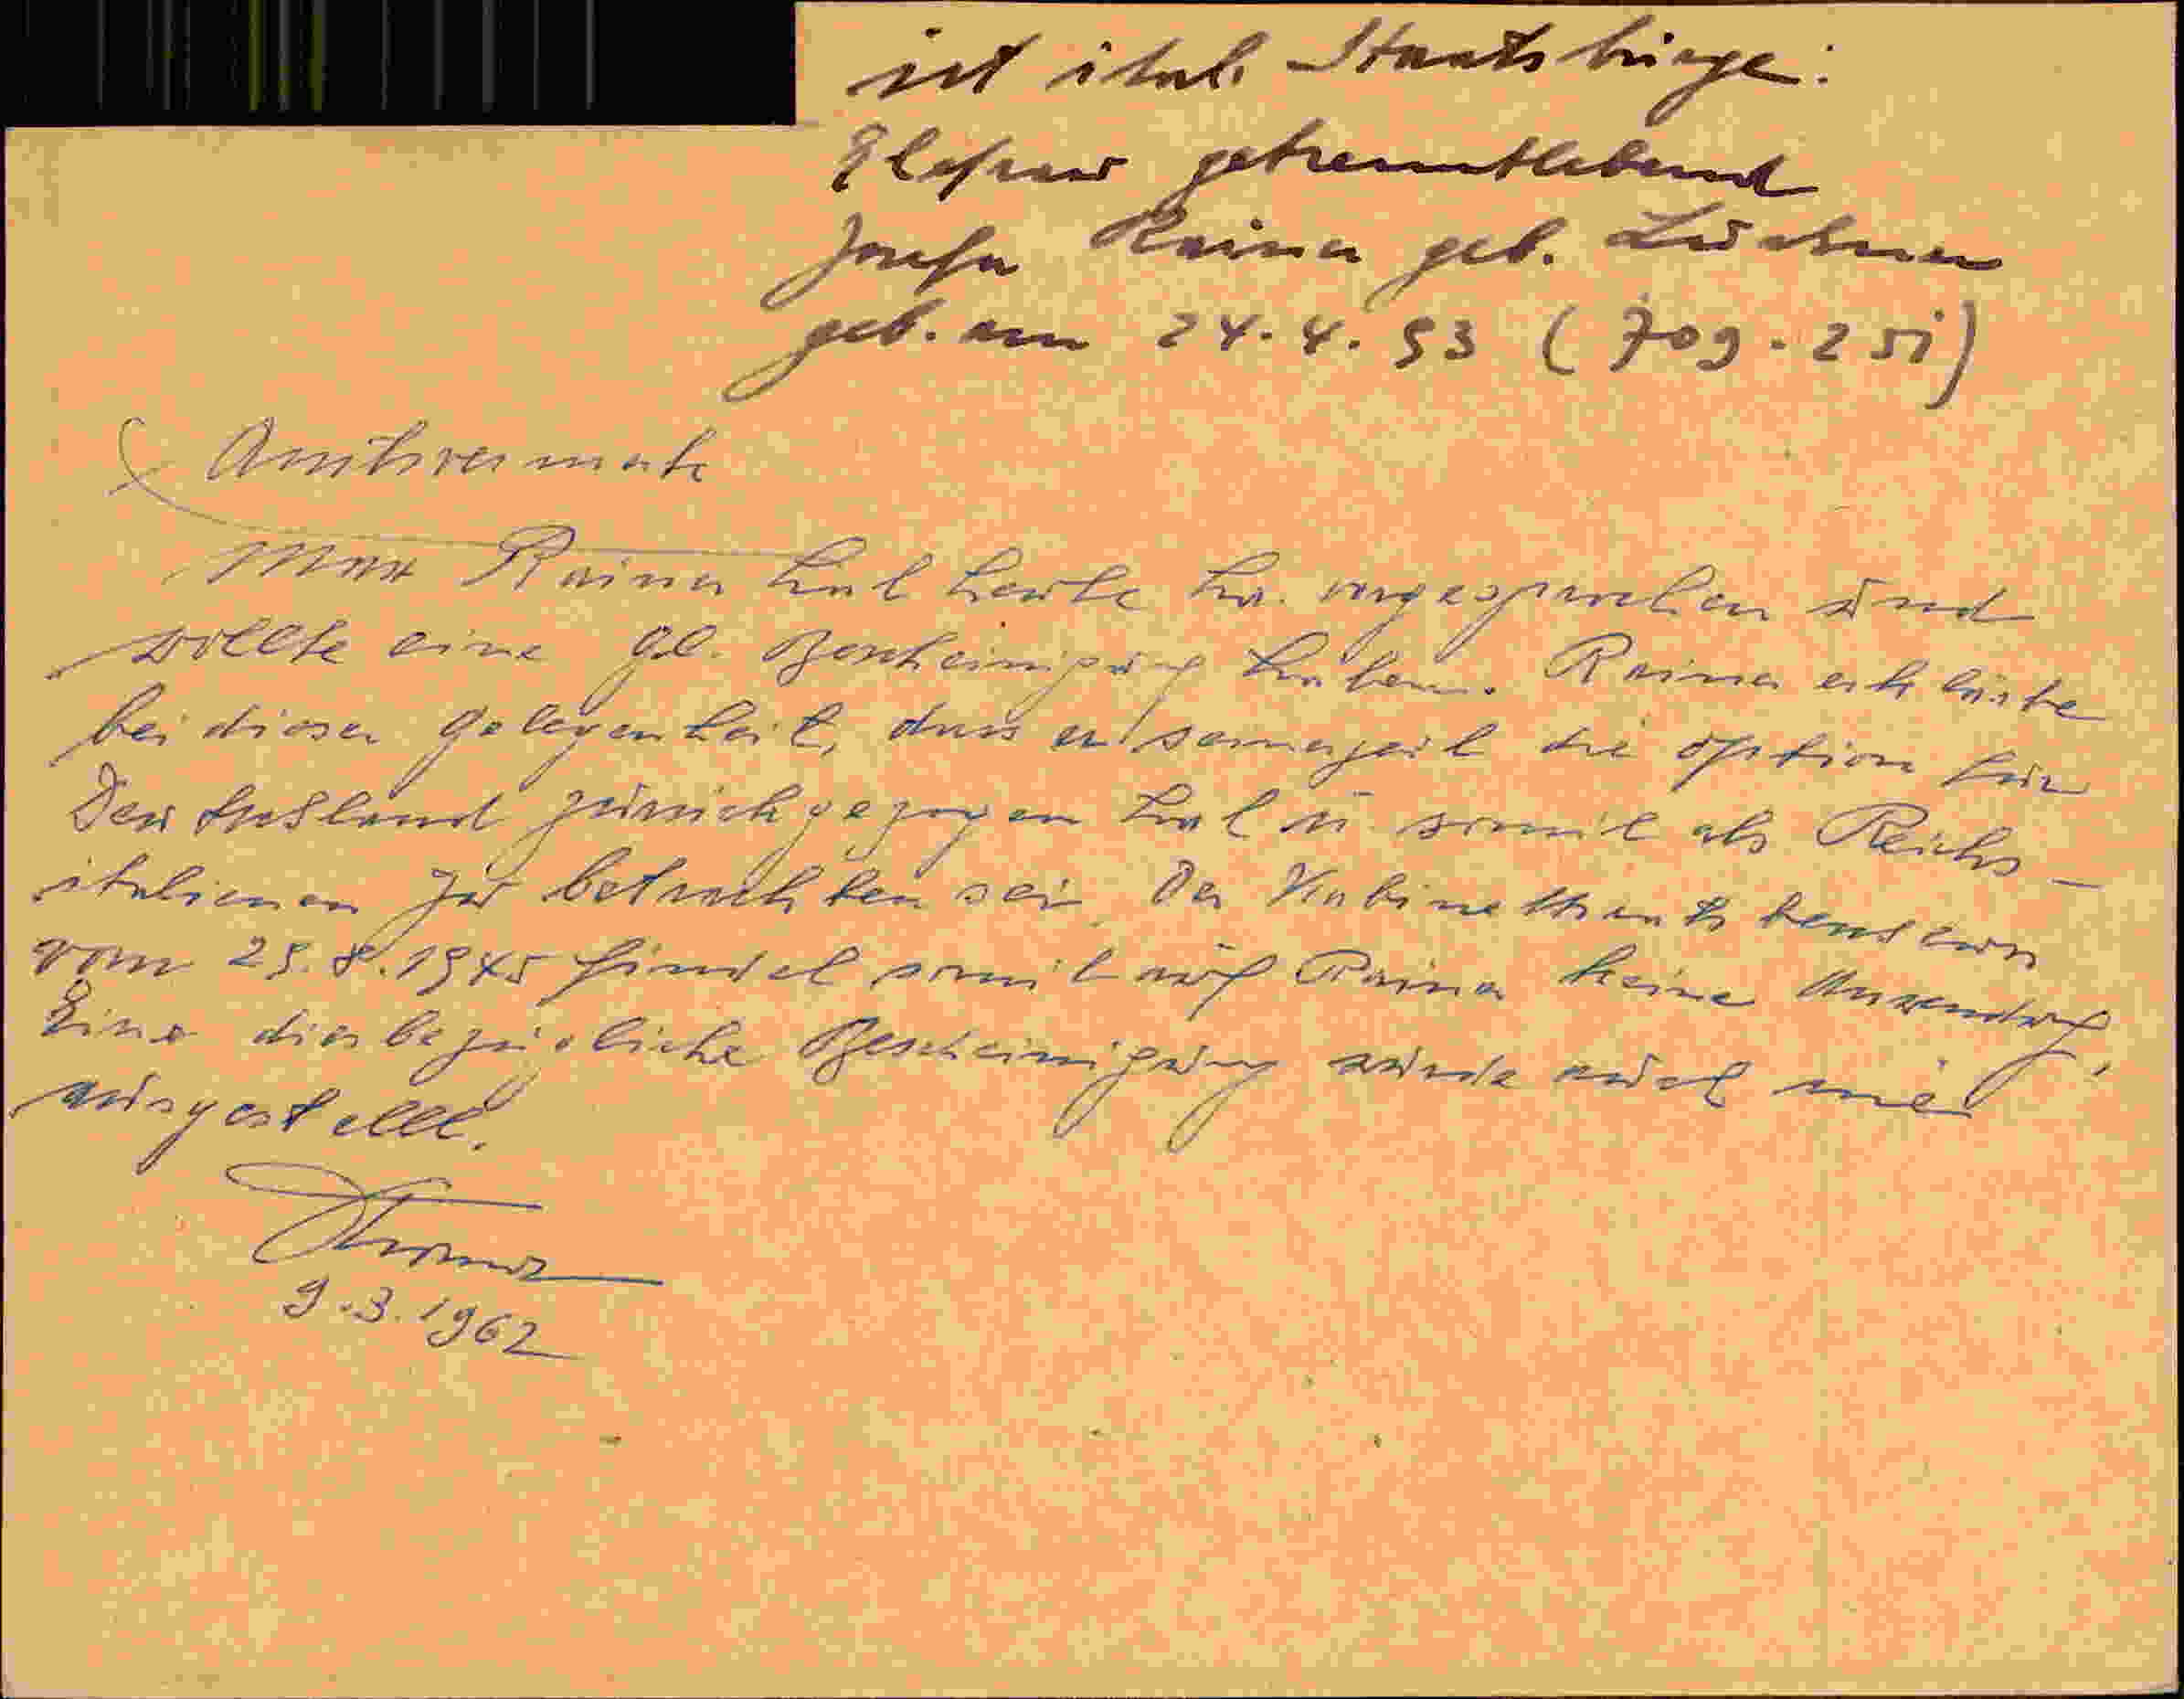 ist ital. Staatsbürger.
Ehefrau getrenntlebend
Josefa Rainer geb.
geb. am 24.4.93 (709.251)
Amtsvermerk
Max Rainer hat heute ha. vorgesprochen und
wollte eine Bescheinigung haben. Rainer erklärte
bei dieser Gelegenheit, dass er seinerzeit die Option für
Deutschland zurückgezogen hat u. somit als Reichs-
italiener zu betrachten sei. Der Kabinettsratsbeschluss
vom 29.8.1945 findet somit auf Rainer keine Anwendung.
Eine diesbezügliche Bescheinigung wurde auch nie
ausgestellt.
9.3.1962